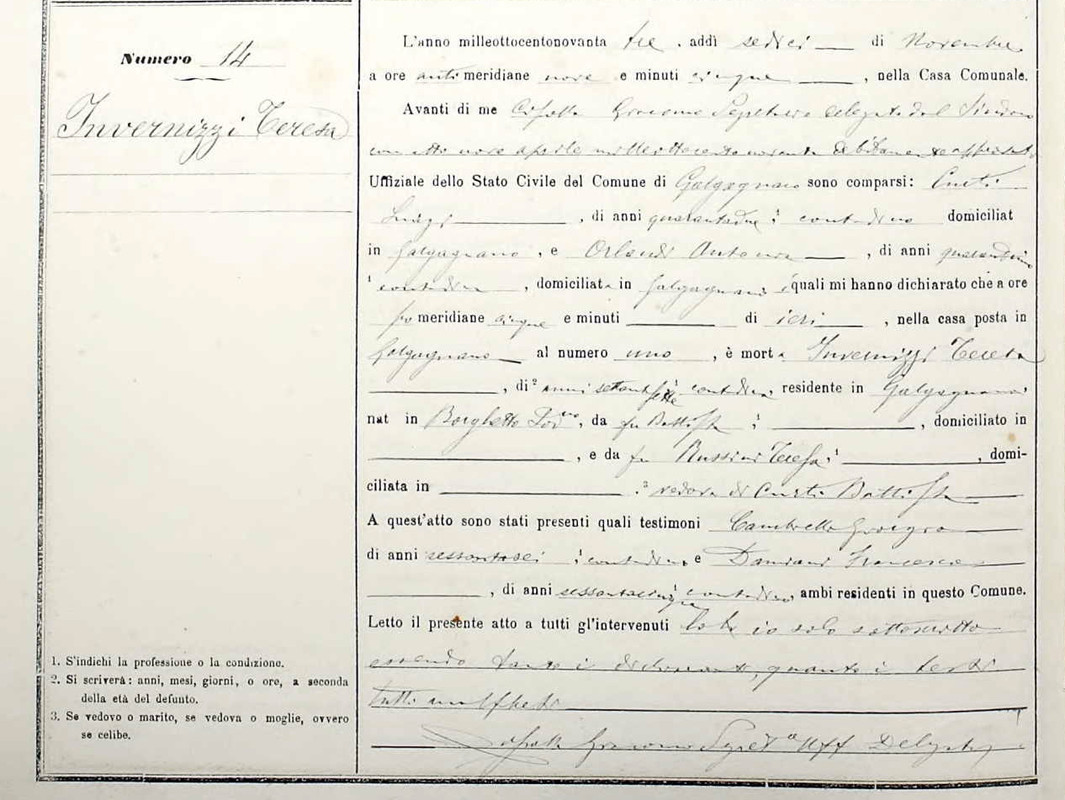 Numero 14
Invernizzi Teresa
L'anno milleottocentonovanta tre, addì sedici di Novembre
a ore anti meridiane nove e minuti cinque, nella Casa Comunale.
Avanti di me Giacomo Segretario delegato dal Sindaco
con atto nove aprile milleottocentonovanta debitamente approvato
Uffiziale dello Stato Civile del Comune di Galgagnano sono comparsi: Curti
Luigi, di anni quarantadue, contadino domiciliat
in Galgagnano, e Orlandi Antonio, di anni
contadino, domiciliato in Galgagnano, i quali mi hanno dichiarato che a ore
po meridiane cinque e minuti di ieri, nella casa posta in
Galgagnano al numero uno, è morta Invernizzi Teresa
, di² anni settantasette contadina, residente in Galgagnano
nat in Borghetto Lod.no, da fu Battista, domiciliato in
, e da fu Teresa, domi-
ciliata in ³ vedova di Curti Battista
A quest'atto sono stati presenti quali testimoni
di anni sessantasei contadino e Damiani Francesco
, di anni sessantacinque contadino, ambi residenti in questo Comune.
Letto il presente atto a tutti gl'intervenuti io solo sottoscritto
essendo tanto i dichiaranti, quanto i testi
tutti analfabeti
Giacomo Segret.o Uff Delegato
1. S'indichi la professione o la condizione.
2. Si scriverà: anni, mesi, giorni, o ore, a seconda
della età del defunto.
3. Se vedovo o marito, se vedova o moglie, ovvero
se celibe.